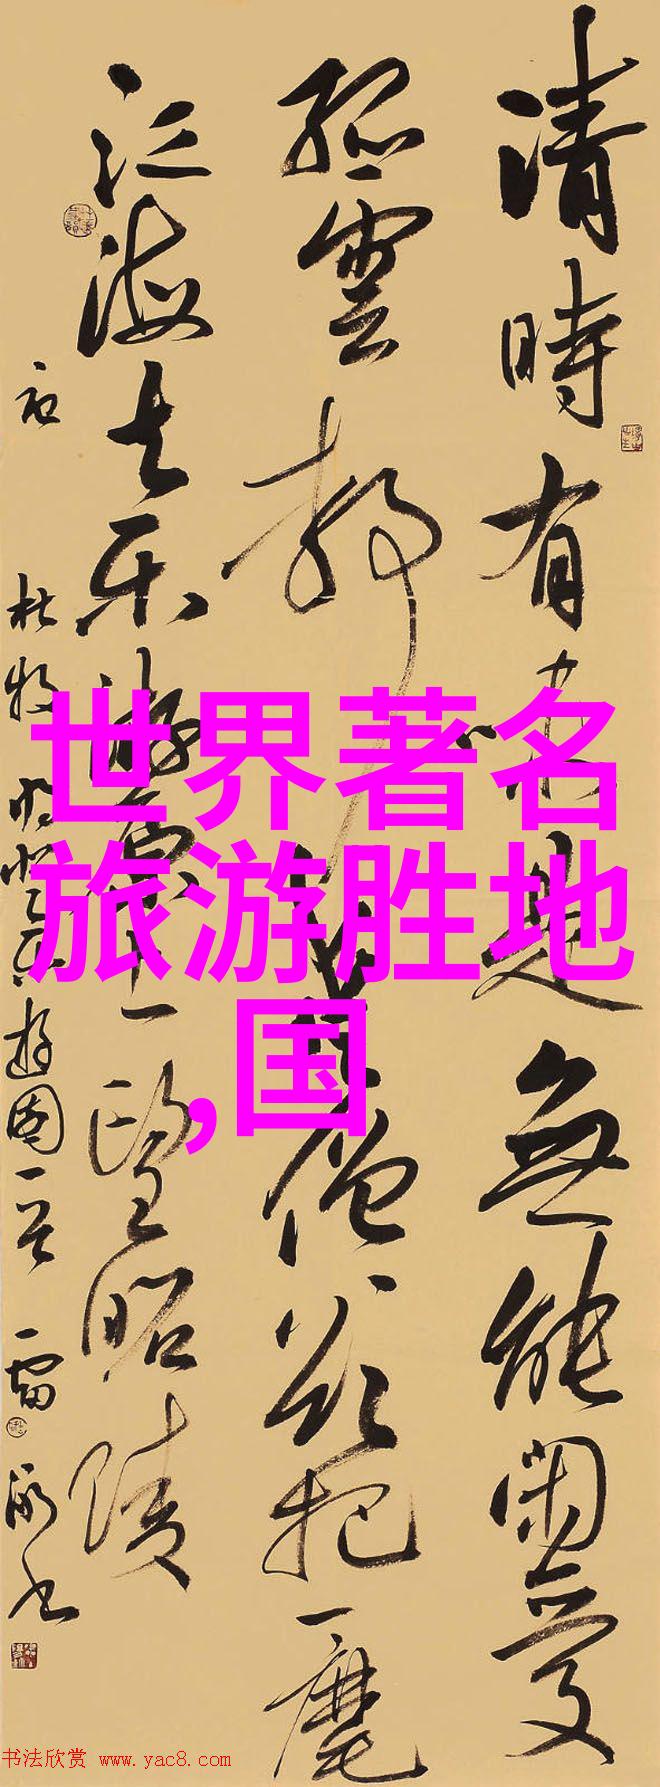 清時有味是無能閑愛
孤雲静愛僧欲把一麾
江海去乐游原上望昭陵
杜牧
世界著名
旅游胜地
,国
书法欣赏 www.yac8.com